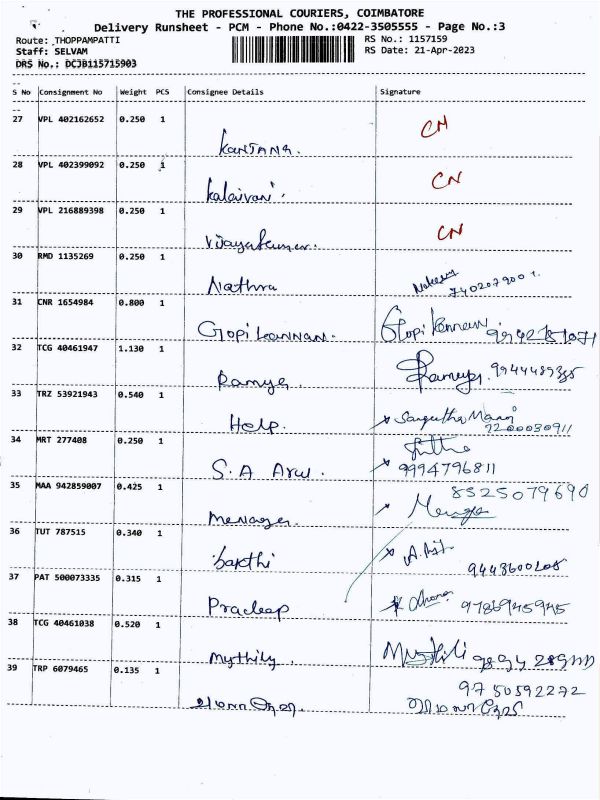 THE PROFESSIONAL COURIERS, COIMBATORE
Delivery Runsheet - PCM - Phone No.:0422-3505555 - Page No.:3
Route: THOPPAMPATTI RS No.: 1157159
Staff: SELVAM RS Date: 21-Apr-2023
DRS No.: DCJB115715903
S No Consignment No Weight PCS Consignee Details Signature
27 VPL 402162652 0.250 1 CN
KANJANA.
28 VPL 402399092 0.250 1 CN
Kalaivani.
29 VPL 216889398 0.250 1 CN
Vijayakumar.
30 RMD 1135269 0.250 1
Nathra 740207900
31 CNR 1654984 0.800 1
Gopi Kannan. Gopi Kannan
32 TCG 40461947 1.130 1
Ramya. Ramya.
33 TRZ 53921943 0.540 1
Help. Sangeetha Mani
7200030911
34 MRT 277408 0.250 1
S.A Arul. 9994796811
35 MAA 942859007 0.425 1 8525079690
Manager.
36 TUT 787515 0.340 1
Sakthi
37 PAT 500073335 0.315 1
Pradeep 9786945945
38 TCG 40461038 0.520 1
Mythily. Mythili
39 TRP 6079465 0.135 1 9750592272